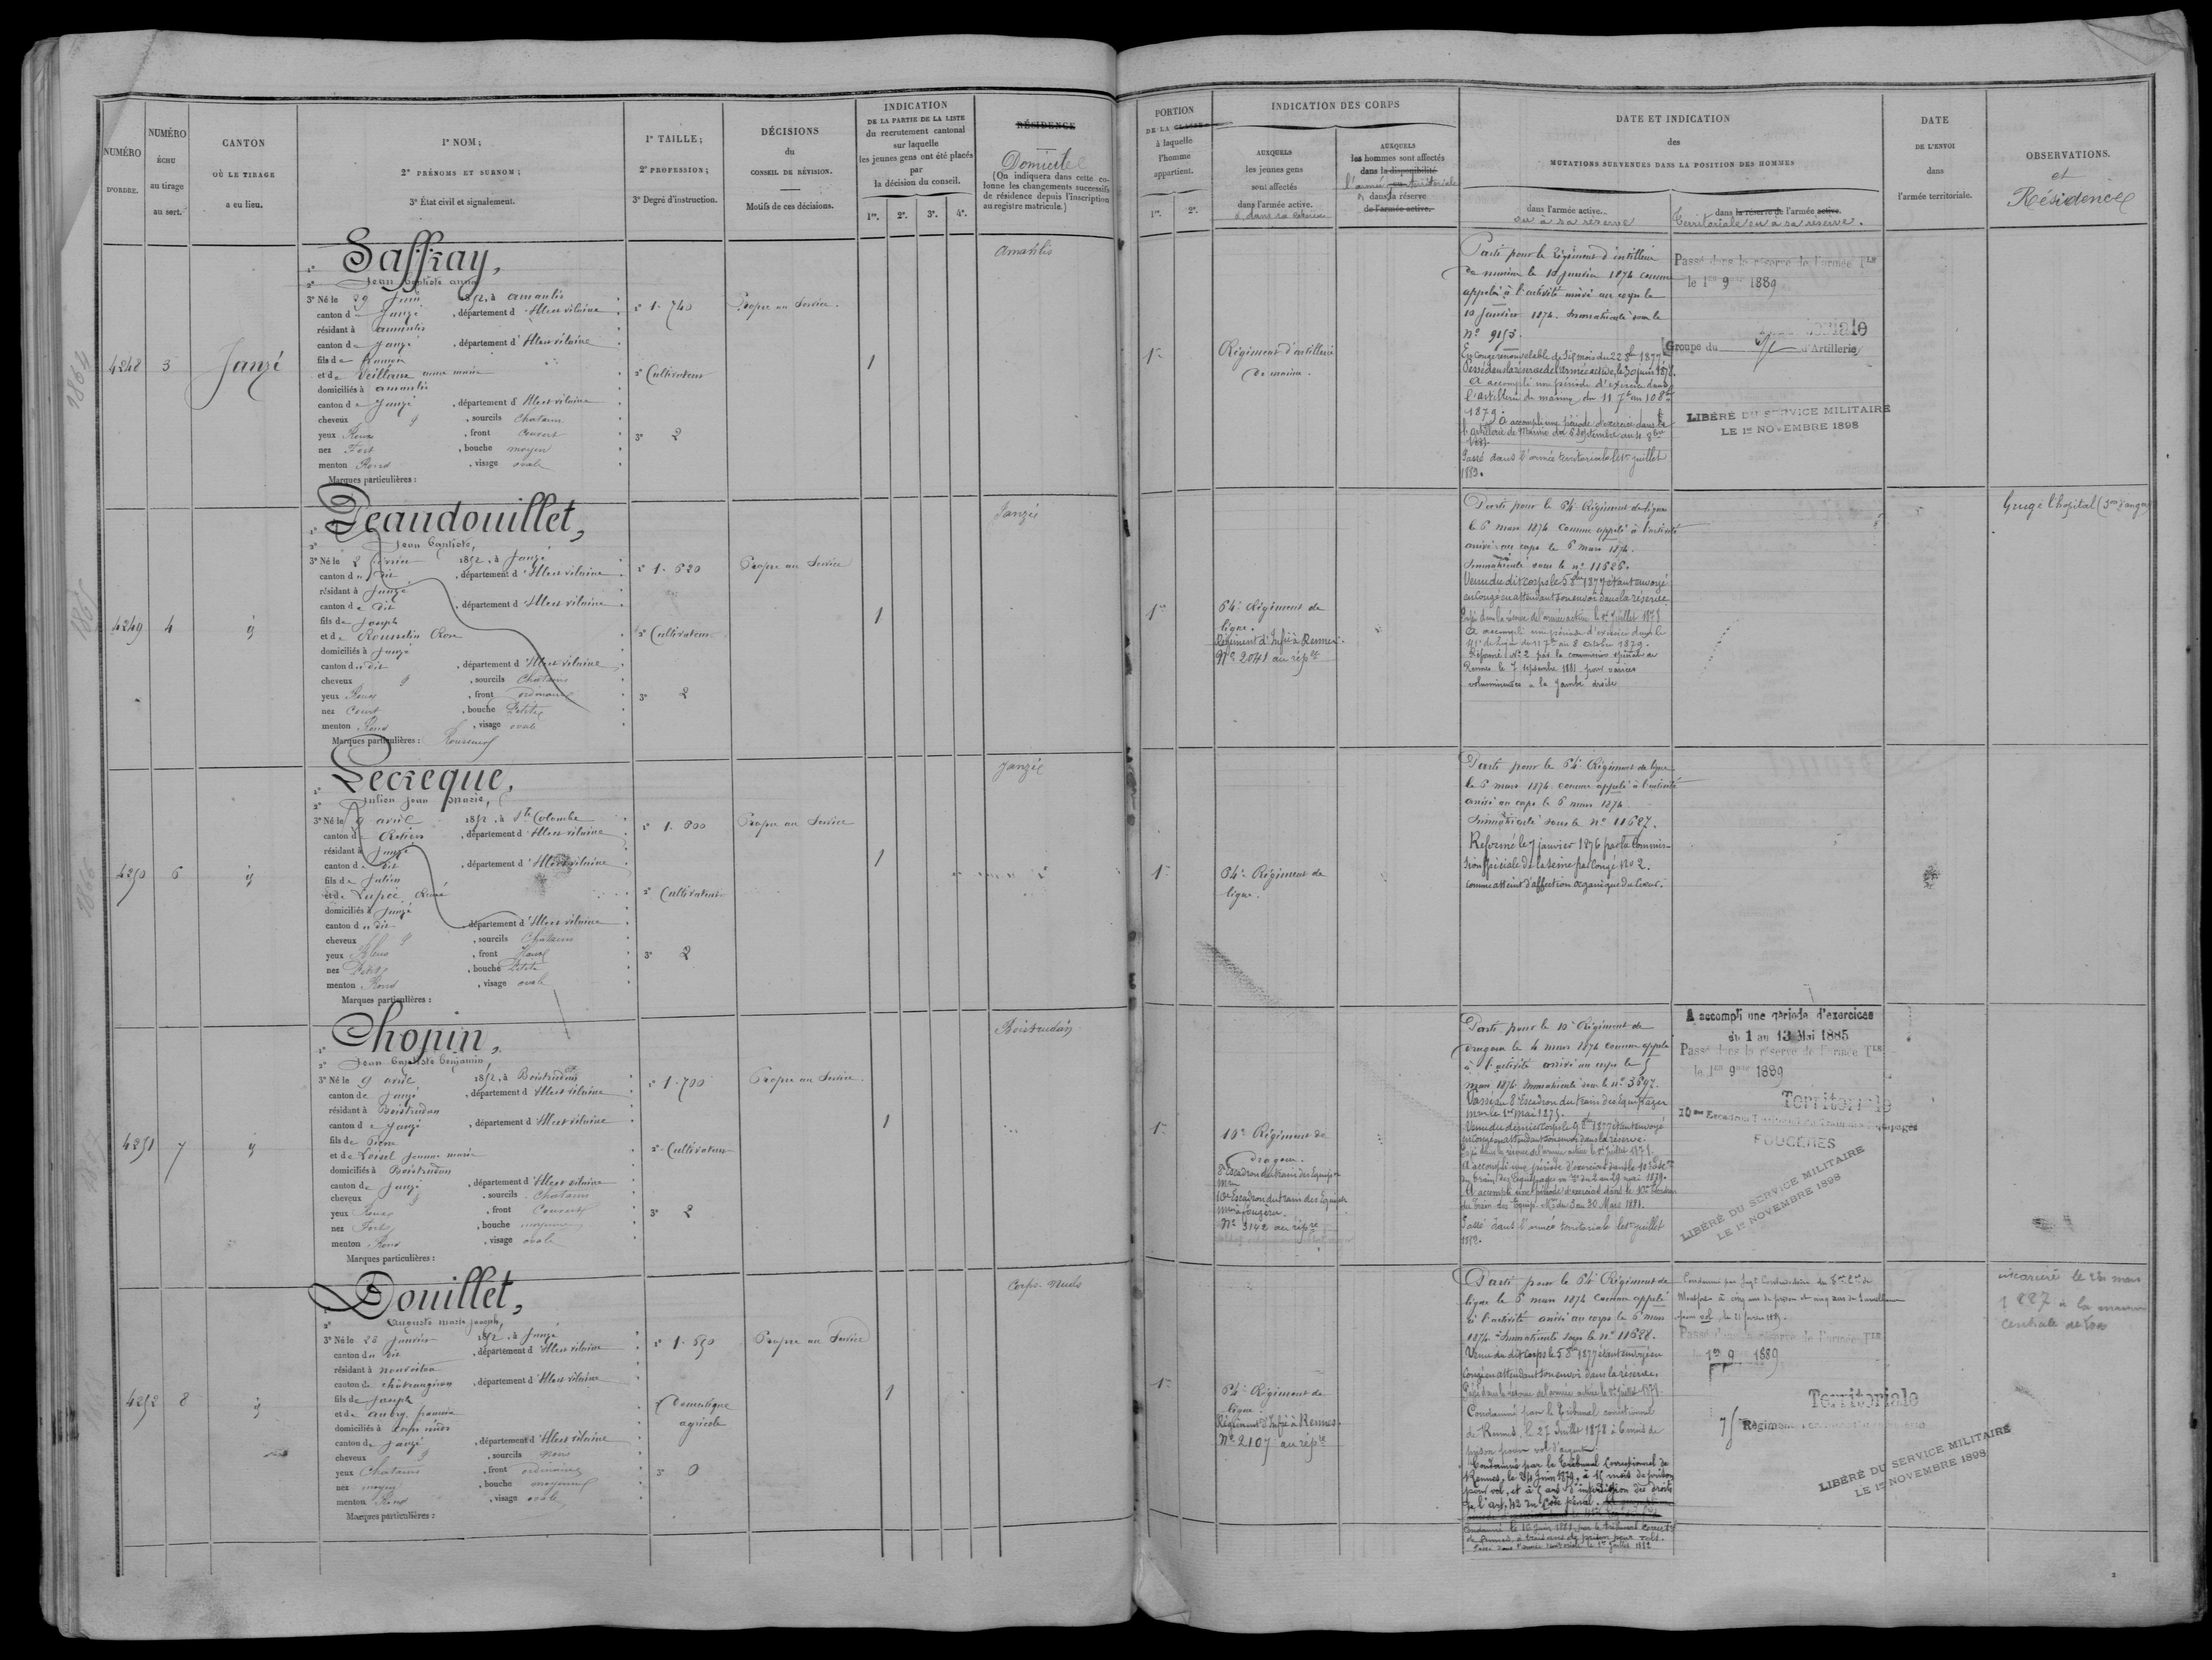 NUMÉRO
D'ORDRE.
NUMÉRO
ÉCHU
au tirage
au sort.
CANTON
OÙ LE TIRAGE
a eu lieu.
1° NOM ;
2° PRÉNOMS ET SURNOM ;
3° État civil et signalement.
1° TAILLE ;
2° PROFESSION ;
3° Degré d'instruction.
DÉCISIONS
du
CONSEIL DE RÉVISION.
Motifs de ces décisions.
INDICATION
DE LA PARTIE DE LA LISTE
du recrutement cantonal
sur laquelle
les jeunes gens ont été placés
par
la décision du conseil.
1re. 2e. 3e. 4e.
RÉSIDENCE
Domicile
(On indiquera dans cette co-
lonne les changements successifs
de résidence depuis l'inscription
au registre matricule.)
PORTION
DE LA CLASSE
à laquelle
l'homme
appartient.
1re. 2e.
INDICATION DES CORPS
AUXQUELS
les jeunes gens
sont affectés
dans l'armée active.
AUXQUELS
les hommes sont affectés
dans la disponibilité
dans la réserve
de l'armée active.
DATE ET INDICATION
des
MUTATIONS SURVENUES DANS LA POSITION DES HOMMES
dans l'armée active.
ou à sa réserve
dans la réserve de l'armée active.
Territoriale ou à sa réserve.
DATE
DE L'ENVOI
dans
l'armée territoriale.
OBSERVATIONS.
et
Résidence
4248 3 Janzé
1° Saffray,
2° Jean Baptiste
3° Né le 29 Juin 1852, à Amanlis
canton de Janzé, département d'Ille et Vilaine
résidant à Amanlis
canton de Janzé, département d'Ille et Vilaine
fils de
et de
domiciliés à Amanlis
canton de Janzé, département d'Ille et Vilaine
cheveux, sourcils Chatains
yeux Roux, front Couvert
nez Fort, bouche moyen
menton Rond, visage ovale
Marques particulières :
1° 1.740
2° Cultivateur
3° 2
Propre au Service.
1
Amanlis
1re
Régiment d'artillerie
de marine.
Parti pour le Régiment d'artillerie
de marine le 10 janvier 1874 comme
appelé à l'activité arrivé au corps le
10 Janvier 1874. Immatriculé sous le
N° 9153.
En congé renouvelable de Six mois du 22 8bre 1877
Passé dans la réserve de l'armée active, le 30 juin 1878.
A accompli une période d'exercices dans
l'artillerie de marine du 11 7bre au 8 8bre
1879.
A accompli une période d'exercices dans
l'artillerie de Marine du 6 Septembre au 4 8bre
1881.
Passé dans l'armée territoriale le 1er juillet
1883.
Passé dans la réserve de l'armée Tle
le 1er 9 1889
Groupe du d'Artillerie
LIBÉRÉ DU SERVICE MILITAIRE
LE 1er NOVEMBRE 1898
4249 4
1° Jeaudouillet,
2° Jean Baptiste,
3° Né le 2 1852, à Janzé
canton du dit, département d'Ille et Vilaine
résidant à Janzé
canton de dit, département d'Ille et Vilaine
fils de Joseph
et de Rousselin Rose
domiciliés à Janzé
canton du dit, département d'Ille et Vilaine
cheveux, sourcils Chatains
yeux Roux, front ordinaire
nez Court, bouche Petite
menton Rond, visage ovale
Marques particulières :
1° 1.620
2° Cultivateur
3° 2
Propre au Service
1
Janzé
1re
64e Régiment de
ligne.
Régiment d'Infrie à Rennes.
N° 2041 au réple
Parti pour le 64e Régiment de ligne
le 6 mars 1874 comme appelé à l'activité
arrivé au corps le 6 mars 1874.
Immatriculé sous le n° 11626.
Venu du dit corps le 5 8bre 1877 étant envoyé
en congé en attendant son envoi dans la réserve
Passé dans la réserve de l'armée active le 1er Juillet 1878
A accompli une période d'exercices dans le
41e de ligne du 11 7bre au 8 octobre 1879.
Réformé N° 2 par la commission spéciale de
Rennes le 7 septembre 1881 pour varices
volumineuses à la jambe droite
Grugé l'hopital
4250 6
1° Lecrecque,
2° Julien Jean Marie,
3° Né le 9 avril 1852, à Ste Colombe
canton de Retiers, département d'Ille et Vilaine
résidant à Janzé
canton du dit, département d'Ille et Vilaine
fils de Julien
et de
domiciliés à Janzé
canton du dit, département d'Ille et Vilaine
cheveux, sourcils Chatains
yeux Bleus, front Haut
nez Petit, bouche Petite
menton Rond, visage ovale
Marques particulières :
1° 1.800
2° Cultivateur
3° 2
Propre au Service
1
Janzé
1re
64e Régiment de
ligne.
Parti pour le 64e Régiment de ligne
le 6 mars 1874 comme appelé à l'activité
arrivé au corps le 6 mars 1874
Immatriculé sous le N° 11627.
Reformé le 7 janvier 1876 par la Commis-
sion spéciale de la Seine par Congé No 2.
comme atteint d'affection organique du Coeur.
4251 7
1° Chopin,
2° Jean Baptiste Benjamin,
3° Né le 9 avril 1852, à Boistrudan
canton de Janzé, département d'Ille et Vilaine
résidant à Boistrudan
canton de Janzé, département d'Ille et Vilaine
fils de Pierre
et de Loisel Jeanne marie
domiciliés à Boistrudan
canton de Janzé, département d'Ille et Vilaine
cheveux, sourcils Chatains
yeux Roux, front Couvert
nez Fort, bouche moyenne
menton Rond, visage ovale
Marques particulières :
1° 1.700
2° Cultivateur
3° 2
Propre au Service.
1
Boistrudan
1re
10e Régiment de
dragons.
8e Escadron du train des Equipages
mres
10e Escadron du train des Equipages
mres à fougères.
N° 3142 au réple
Parti pour le 10e Régiment de
dragons le 4 mars 1874 comme appelé
à l'activité arrivé au corps le 5
mars 1874. Immatriculé sous le n° 3697.
Passé au 8e Escadron du train des Equipages
mres le 1er mai 1875.
Venu du dernier corps le 9 8bre 1877 étant envoyé
en congé en attendant son envoi dans la réserve.
Passé dans la réserve de l'armée active le 1er Juillet 1878.
A accompli une période d'exercices dans le 10e Escon
du train des Equipages mres du 2 au 29 mai 1879.
A accompli une période d'exercices dans le 10e Escadron
du train des Equip. Mres du 3 au 30 Mars 1881.
Passé dans l'armée territoriale le 1er juillet
1882.
A accompli une période d'exercices
du 1 au 13 Mai 1885
Passé dans la réserve de l'armée Tle
le 1er 9 1889
Territoriale
10me Escadron
FOUGERES
LIBÉRÉ DU SERVICE MILITAIRE
LE 1er NOVEMBRE 1898
4252 8
1° Douillet,
2° Auguste marie Joseph,
3° Né le 23 Janvier 1852, à Janzé
canton du dit, département d'Ille et Vilaine
résidant à nouvoitou
canton de chateaugiron, département d'Ille et Vilaine
fils de Joseph
et de Aubry
domiciliés à Corps nuds
canton de Janzé, département d'Ille et Vilaine
cheveux, sourcils Noirs
yeux Chatains, front ordinaire
nez moyen, bouche moyenne
menton Rond, visage ovale
Marques particulières :
Domestique
agricole
3° 0
Propre au Service
1
Corps-Nuds
1re
64e Régiment de
ligne.
Régiment d'Infrie à Rennes.
N° 2107 au réple
Parti pour le 64e Régiment de
ligne le 6 mars 1874 comme appelé
à l'activité arrivé au corps le 6 mars
1874. Immatriculé sous le n° 11628.
Venu du dit corps le 5 8bre 1877 étant envoyé en
congé en attendant son envoi dans la réserve.
Passé dans la réserve de l'armée active le 1er Juillet 1878.
Condamné par le Tribunal correctionnel
de Rennes, le 27 Juillet 1878 à 6 mois de
prison pour vol d'argent
Condamné par le Tribunal Correctionnel de
Rennes, le Juin 1879, à 15 mois de prison
pour vol, et à 5 ans d'interdiction des droits
de l'art. 42 du Code pénal.
Condamné le Juin 1881 par le tribunal correctel
de Rennes à trois ans de prison pour vols.
Passé dans l'armée territoriale le 1er Juillet 1882
Montfort à cinq ans de prison et cinq ans de surveillance
pour vol
Passé dans la réserve de l'armée Tle
1er 9 1889
Territoriale
75 Régiment
LIBÉRÉ DU SERVICE MILITAIRE
LE 1er NOVEMBRE 1898
incarcéré le 26 mars
1887 à la maison
centrale de